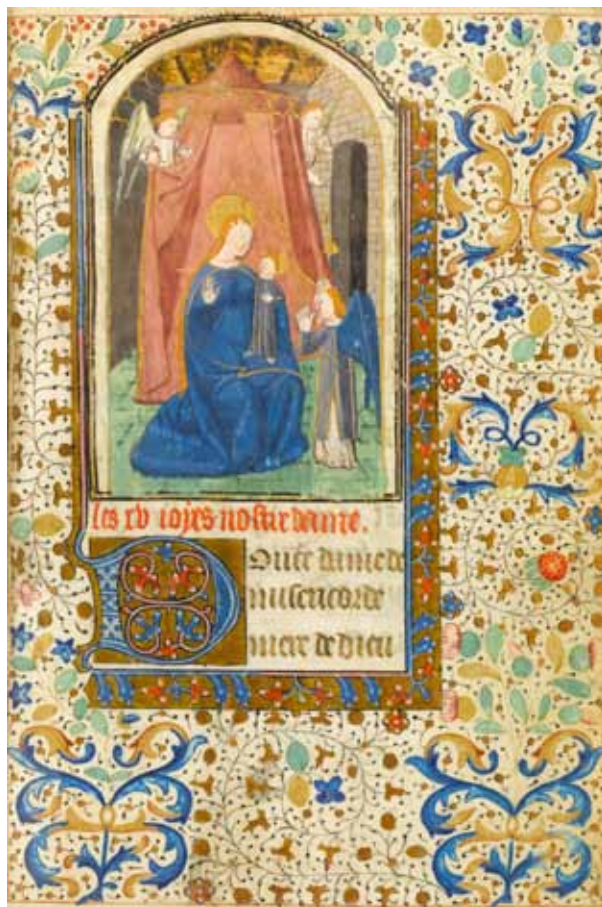 les xv ioyes nostre dame.
Doulce dame de
misericorde
mere de dieu